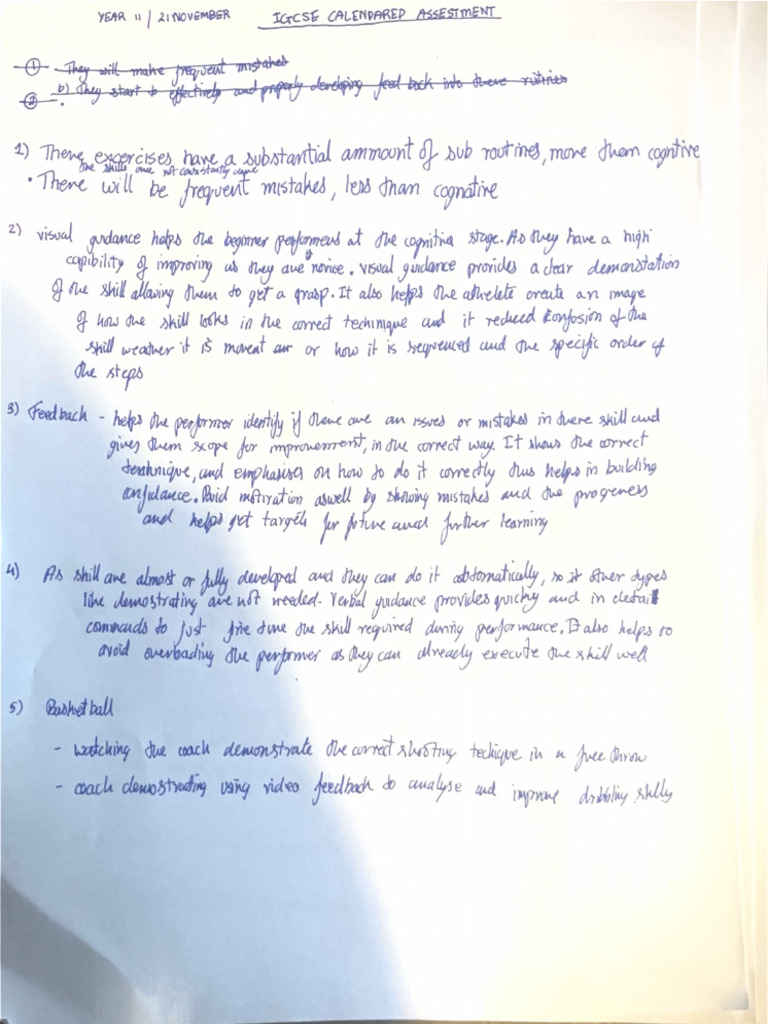 YEAR 11 / 21 NOVEMBER IGCSE CALENDARED ASSESTMENT
① - They will make frequent mistakes
② b) They start to effectively and properly developing feed back into there rutines
1) There excercises have a substantial ammount of sub routines, more them cogntive
the skills are not consistantly done
• There will be frequent mistakes, less than cognative
2) visual guidance helps the beginner performers at the cognitive stage. As they have a high
capibility of improving as they are novice. visual guidance provides a clear demonstation
of the skill allowing them to get a grasp. It also helps the athelete create an image
of how the skill looks in the correct technique and it reduced confusion of the
skill weather it is movent or how it is sequenced and the specific order of
the steps
3) Feedback - helps the performer identify if there are an issues or mistakes in there skill and
gives them scope for improvement, in the correct way. It shows the correct
technique, and emphasises on how to do it correctly thus helps in building
confidance. motivation aswell by showing mistakes and the progeress
and helps get targets for future and further learning
4) As skill are almost or fully developed and they can do it automatically, so it other types
like demostrating are not needed. Verbal guidance provides quickly and in detail
commands to just fine tune the skill required during performance. It also helps to
avoid overloading the performer as they can already execute the skill well
5) Basketball
- watching the coach demonstrate the correct shooting techique in a free throw
- coach demostrating using video feedback to analyse and improve dribbling skills